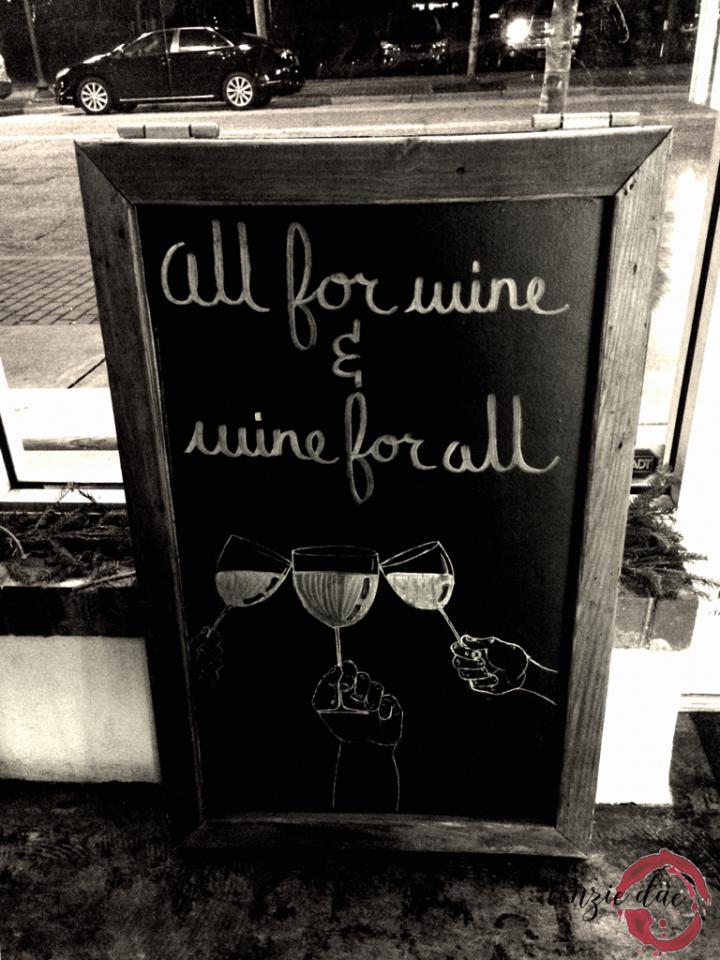 all for wine
&
wine for all
ADT
dae